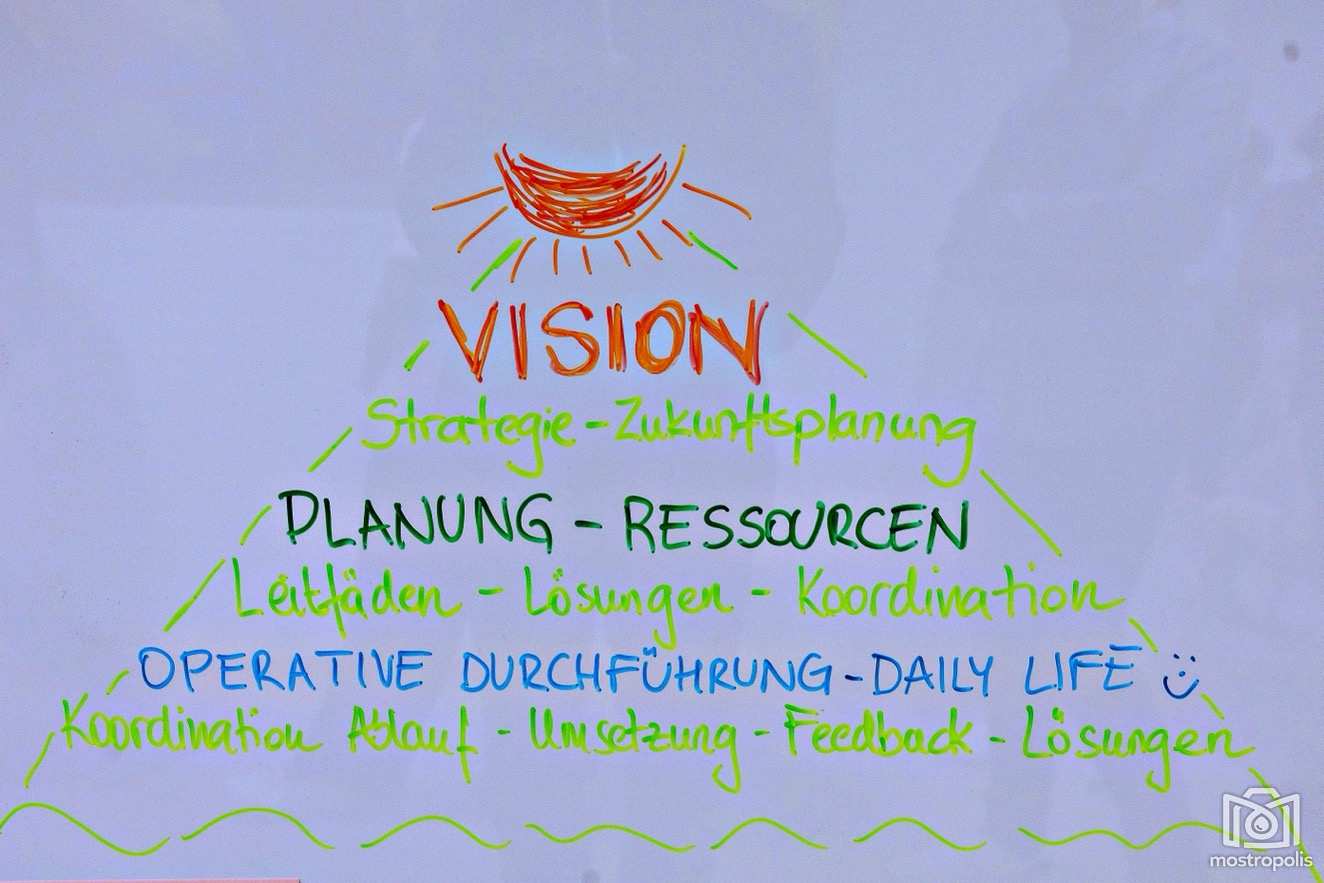 VISION
Strategie - Zukunftsplanung
PLANUNG - RESSOURCEN
Leitfäden - Lösungen - Koordination
OPERATIVE DURCHFÜHRUNG - DAILY LIFE
Koordination Ablauf - Umsetzung - Feedback - Lösungen
mostropolis